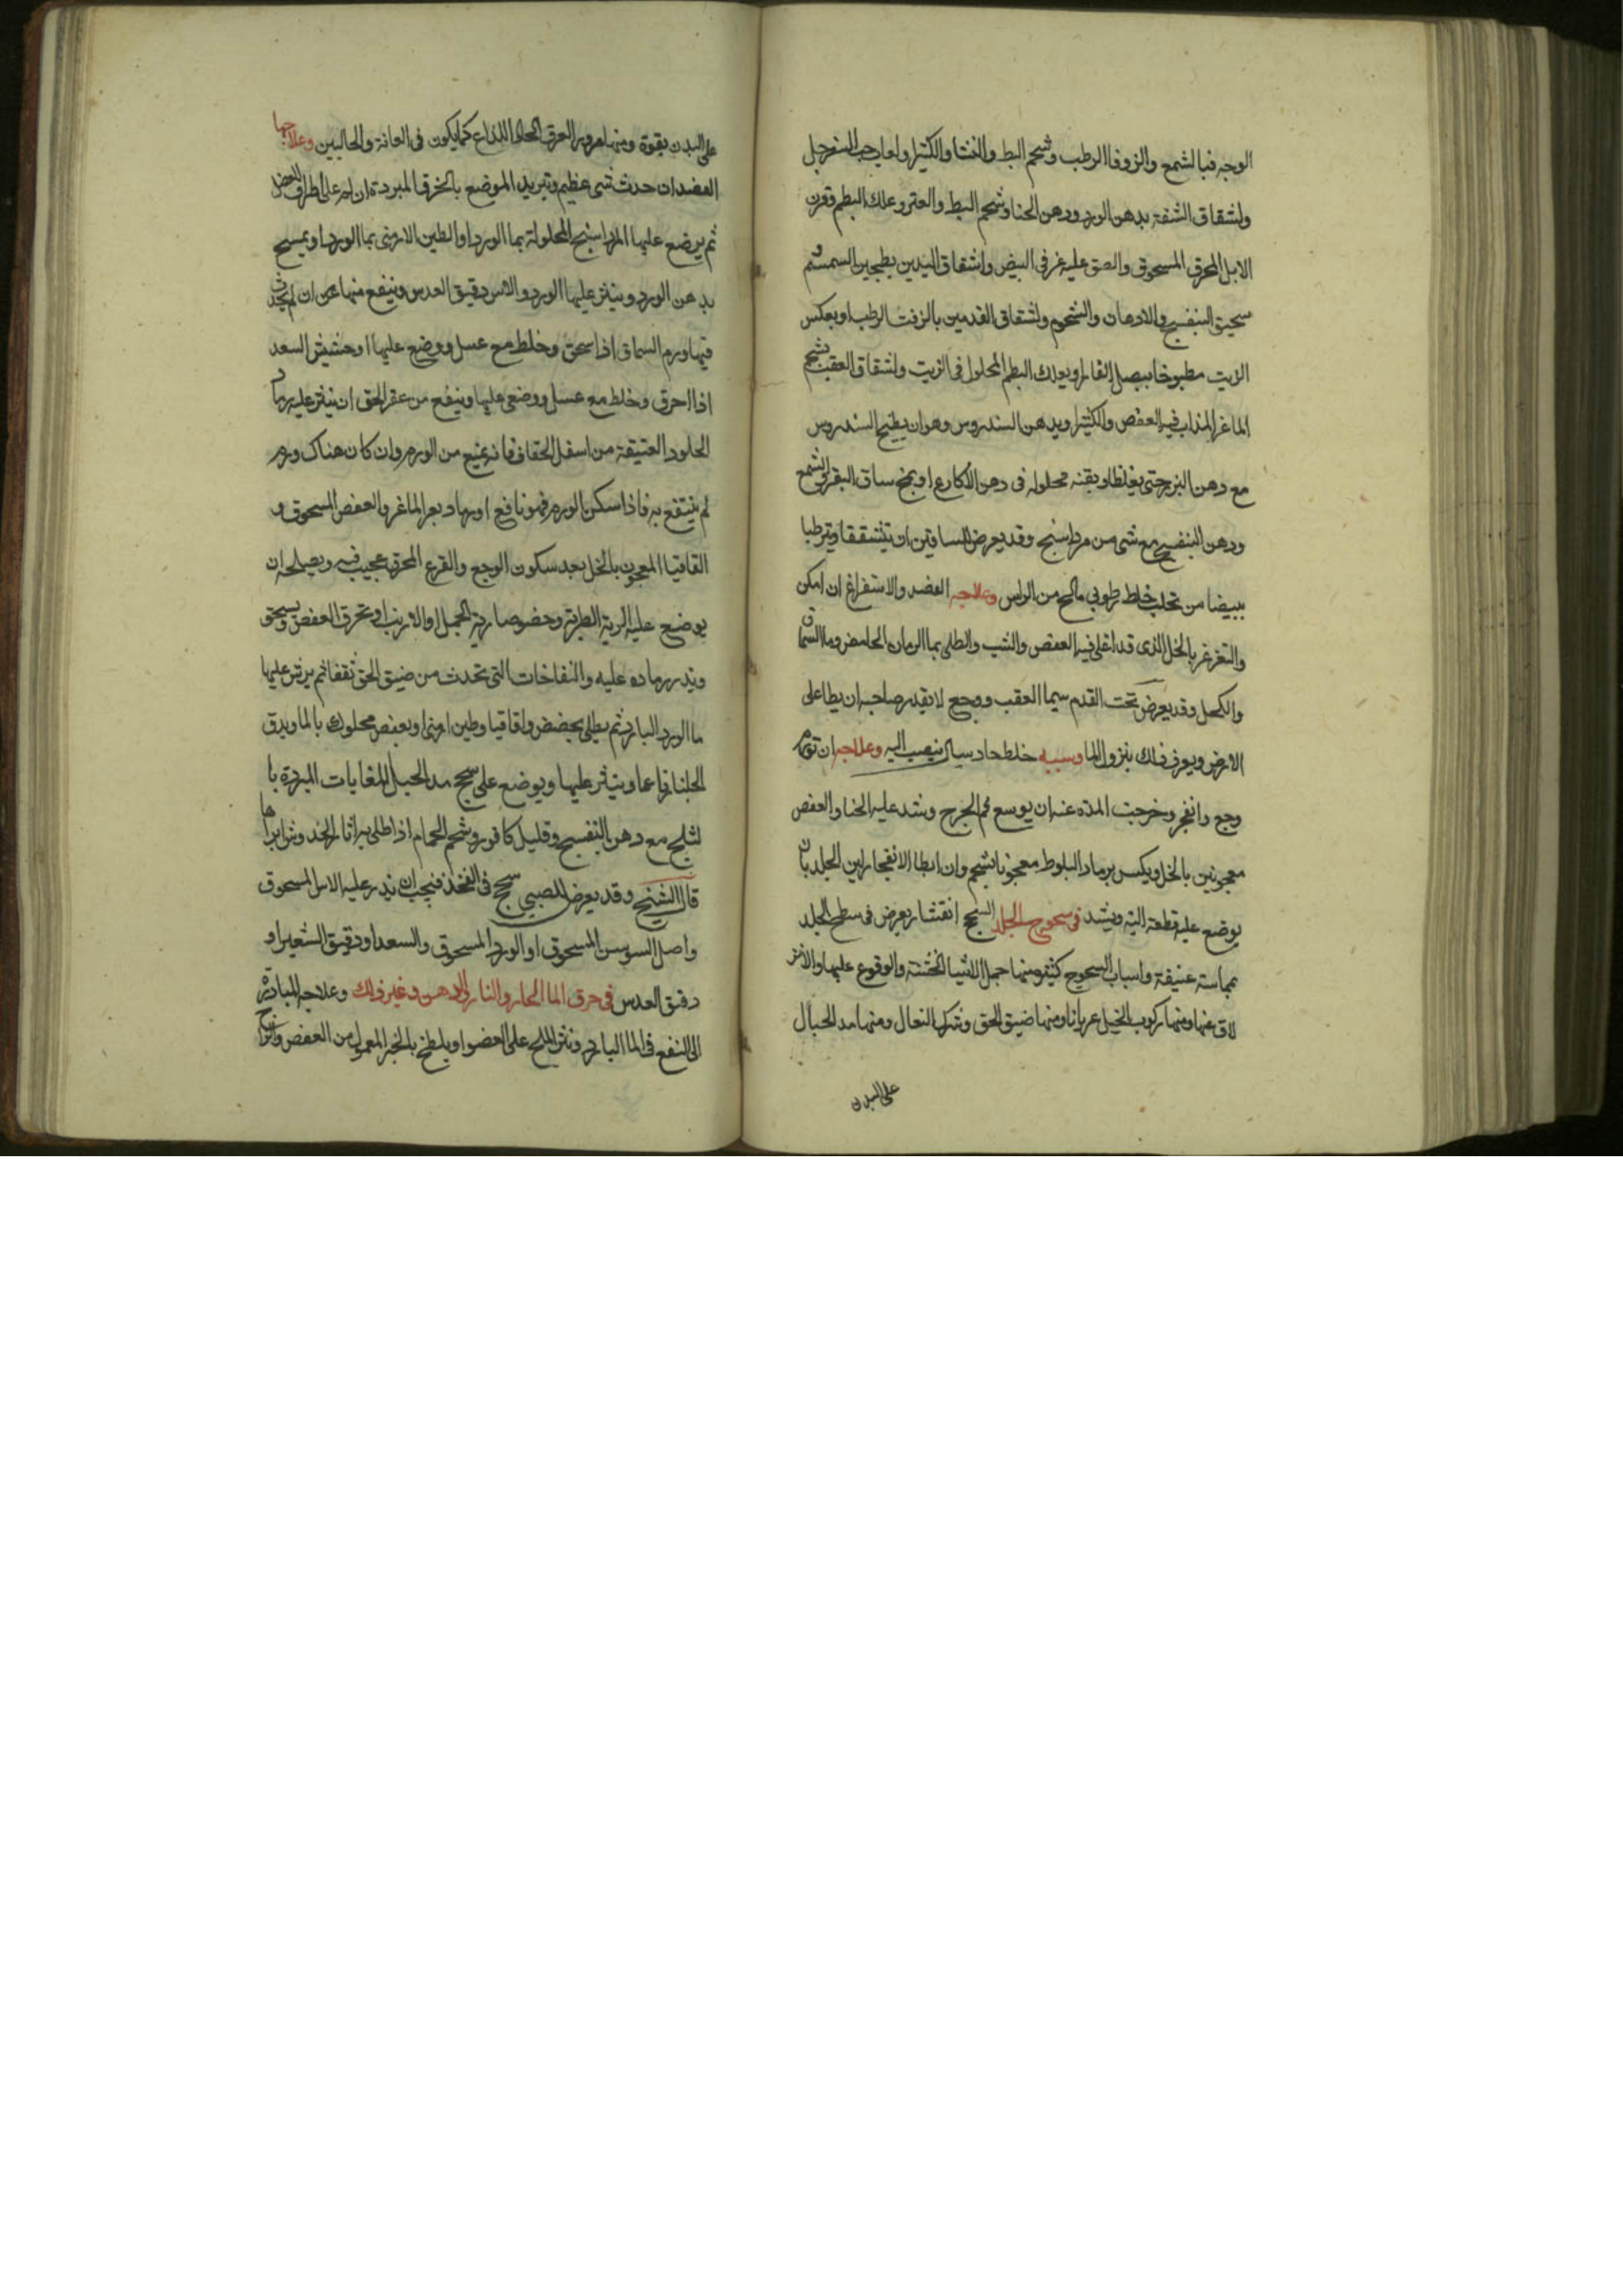 الوجه فبالشمع والزوفا الرطب وشحم البط والنشا والكثيرا ولعاب حب السفرجل
ولشقاق الشفة بدهن الورد ودهن الحنا وشحم البط والعنز وعلك البطم وقرن
الايل المحرق المسحوق والصق عليه غرقى البيض ولشقاق اليدين بطحين السمسم
سحيق البنفسج والادهان والشحوم ولشقاق القدمين بالزفت الرطب او بعكس
الزيت مطبوخا ببصل الفار او بعلك البطم المحلول في الزيت ولشقاق العقب بشحم
الماعز المذاب فيه العفص والكثيرا وبدهن السندروس وهو ان يطبخ السندروس
مع دهن البزر حتى يغلظ او بقنه محلوله في دهن الاكارع او بمخ ساق البقر والشمع
ودهن البنفسج مع شى من مرداسنج وقد يعرض للساقين ان تتشققا وتترطبا
ببيضا من تحلب خلط رطوبي مالح من الراس وعلاجه الفصد والاستفراغ ان امكن
والتغرغر بالخل الذى قد اغلى فيه العفص والشب والطلى بما الرمان الحامض وما السماق
والكحل وقد يعرض تحت القدم سيما العقب وجع لا يقدر صاحبه ان يطا على
الارض ويعرف ذلك بنزول الما وسببه خلط حاد سيال ينصب اليه وعلاجه ان تورم
وجع وانفجر وخرجت المده عنه ان يوسع فم الجرح وشد عليه الحنا والعفص
معجونين بالخل ويكبس برماد البلوط معجونا بشحم وان ابطا الانفجار لين الجلد بان
يوضع عليه قطعة الية ويشد في سحوج الجلد السحج انقشار يعرض في سطح الجلد
بمماسة عنيفة واسباب السحوج كثيرة منها حمل الاشيا الخشنة والوقوع عليها والانز
لاق عنها ومنها ركوب الخيل عريانا ومنها ضيق الخف وشرك النعال ومنها مد الحبال
على البدن
على البدن بقوة ومنها مرور العرق الحاد اللذاع كما يكون في العانة والحالبين وعلاجها
الفصد ان حدث شى عظيم وتبريد الموضع بالخرق المبردة ان لم على اطراف العض
ثم يوضع عليها المرداسنج المحلولة بما الورد او الطين الارمنى بما الورد او يمسح
بدهن الورد وينثر عليها الورد والاس دقيق العدس وينفع منها عن ان لم يحدث
فيها ورم السماق اذا سحق وخلط مع عسل ووضع عليها او حشيش السعد
اذا احرق وخلط مع عسل ووضع عليها وينفع من عقر الخف ان ينثر عليه رماد
الجلود العتيقة من اسفل الخفاف فانه يمنع من الورم وان كان هناك ورم
لم ينتفع به فاذا سكن الورم فهو نافع او رماد بعر الماعز والعفص المسحوق و
القاقيا المعجون بالخل بعد سكون الوجع والقرع المحرق عجيب فيه ويصلحه ان
يوضع عليه الرية الطرية وخصوصا رية الجمل او الارنب او تحرق العفص ويسحق
ويذر رماده عليه والنفاخات التى تحدث من ضيق الخف تفقا ثم يرش عليها
ما الورد البارد ثم يطلى بحضض واقاقيا وطين ارمنى او بعفص محلوك بالما ويدق
الجلنار ناعما وينثر عليها ويوضع على سحج مد الحبل اللعابات المبردة با
لثلج مع دهن البنفسج وقليل كافور وشحم الحمام اذا طلى به اثار الخد وش ابراها
قال الشيخ وقد يعرض للصبي سحج في الفخذ فيجب ان يذر عليه الاس المسحوق
واصل السوسن المسحوق او الورد المسحوق والسعد او دقيق الشعير او
دقيق العدس في حرق الما الحار والنار والدهن وغير ذلك وعلاجه المبادرة
الى النفع في الما البارد ونثر الملح على العضو او يلطخ بالحبر المعمول من العفص والزاج